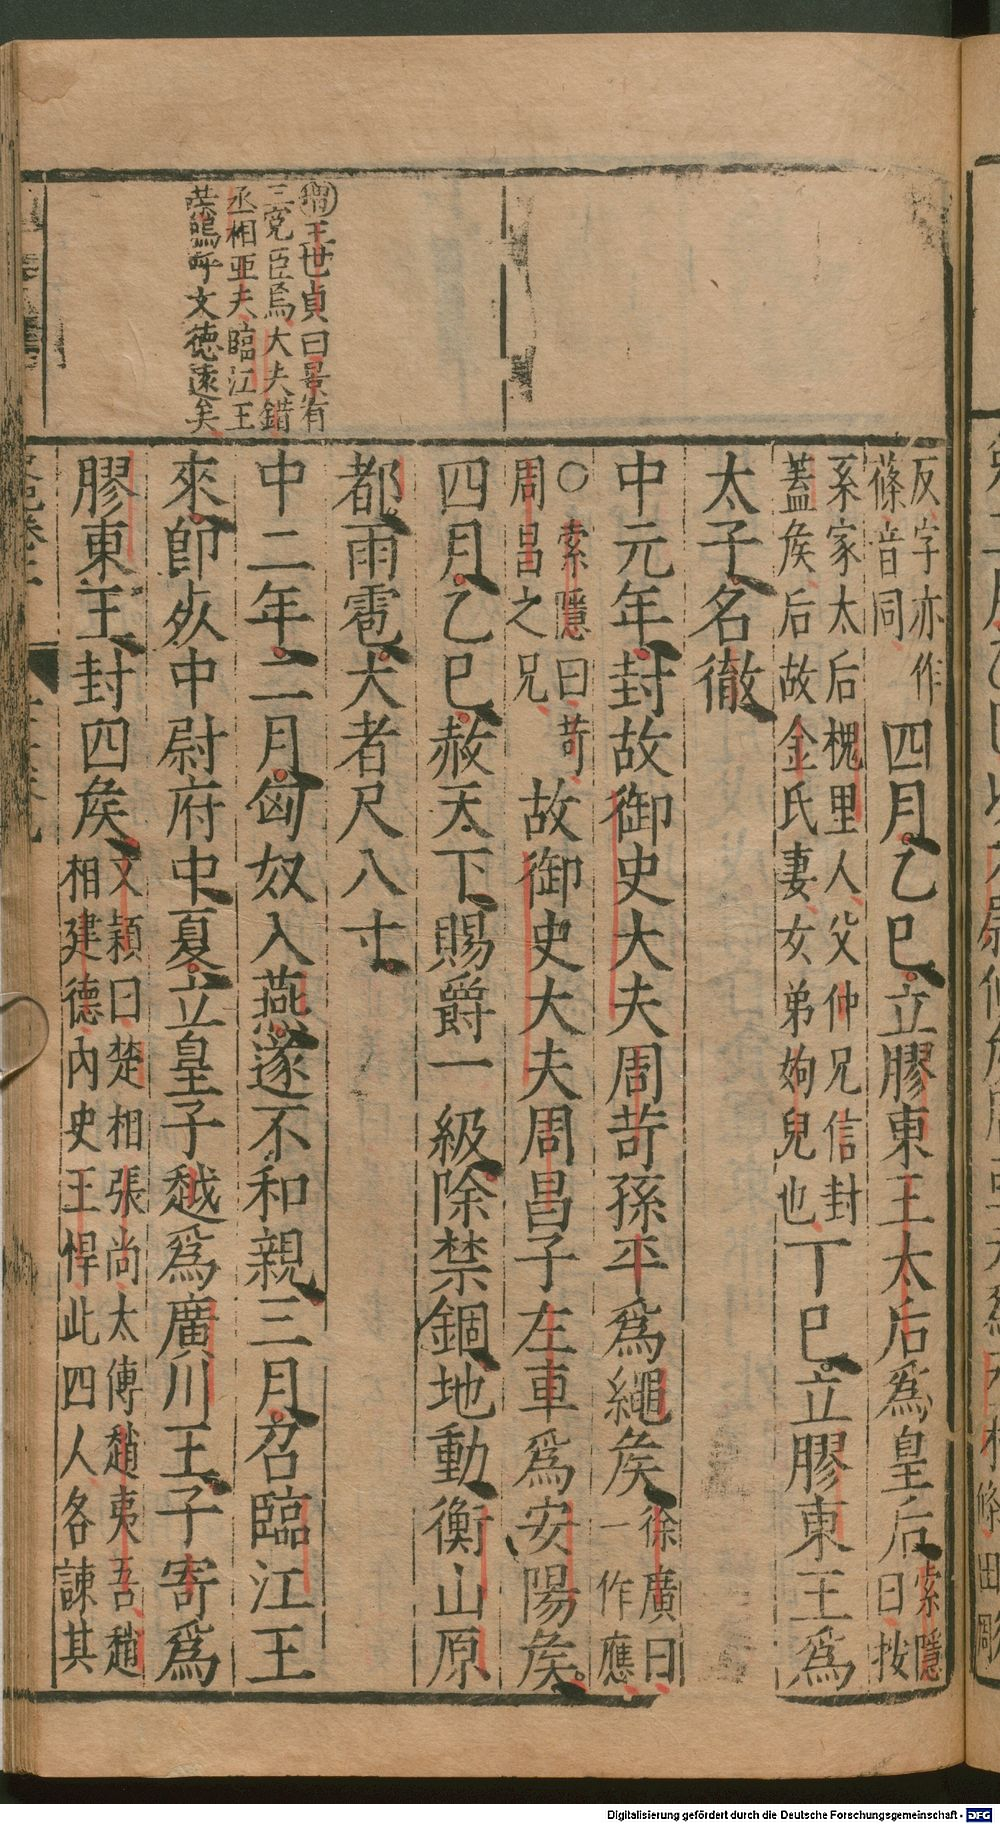 增王世貞曰景有
三寃臣焉大夫錯
丞相亞夫臨江王
榮嗚乎文德遠矣
反字亦作
篠音同
四月乙巳立膠東王太后爲皇后
索隱
曰按
系家太后槐里人父仲兄信封
蓋矦后故金氏妻女弟姁兒也
丁巳立膠東王爲
太子名徹
中元年封故御史大夫周苛孫平爲繩矦
徐廣曰
一作應
○索隱曰苛
周昌之兄
故御史大夫周昌子左車爲安陽矦
四月乙巳赦天下賜爵一級除禁錮地動衡山原
都雨雹大者尺八寸
中二年二月匈奴入燕遂不和親三月召臨江王
來卽死中尉府中夏立皇子越爲廣川王子寄爲
膠東王封四矦
文穎曰楚相張尚太傅趙夷吾趙
相建德內史王悍此四人各諫其
Digitalisierung gefördert durch die Deutsche Forschungsgemeinschaft - DFG